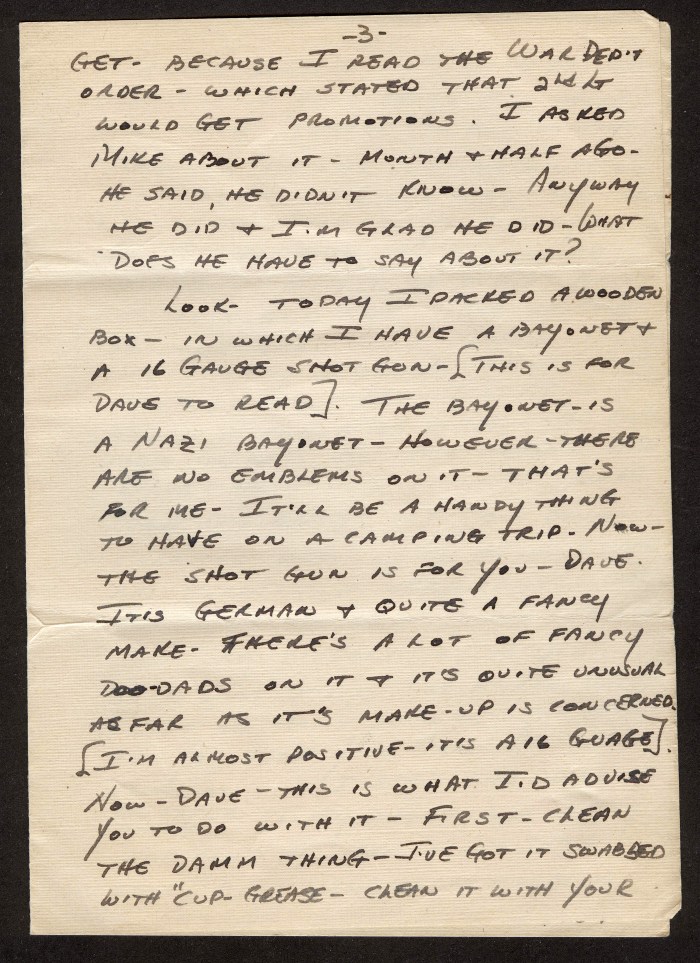 -3-
GET- BECAUSE I READ THE WAR DEP'T
ORDER - WHICH STATED THAT 2nd LT
WOULD GET PROMOTIONS. I ASKED
MIKE ABOUT IT - MONTH + HALF AGO-
HE SAID, HE DIDN'T KNOW - ANYWAY
HE DID + I'M GLAD HE DID - WHAT
DOES HE HAVE TO SAY ABOUT IT?
LOOK- TODAY I PACKED A WOODEN
BOX - IN WHICH I HAVE A BAYONET +
A 16 GAUGE SHOT GUN - [THIS IS FOR
DAVE TO READ]. THE BAYONET - IS
A NAZI BAYONET - HOWEVER - THERE
ARE NO EMBLEMS ON IT - THAT'S
FOR ME - IT'LL BE A HANDY THING
TO HAVE ON A CAMPING TRIP. NOW -
THE SHOT GUN IS FOR YOU - DAVE.
IT IS GERMAN + QUITE A FANCY
MAKE - THERE'S A LOT OF FANCY
DOO-DADS ON IT + IT'S QUITE UNUSUAL
AS FAR AS IT'S MAKE-UP IS CONCERNED.
[I'M ALMOST POSITIVE - IT'S A 16 GUAGE].
NOW - DAVE - THIS IS WHAT I'D ADVISE
YOU TO DO WITH IT - FIRST - CLEAN
THE DAMM THING - I'VE GOT IT SWABBED
WITH "CUP- GREASE - CLEAN IT WITH YOUR